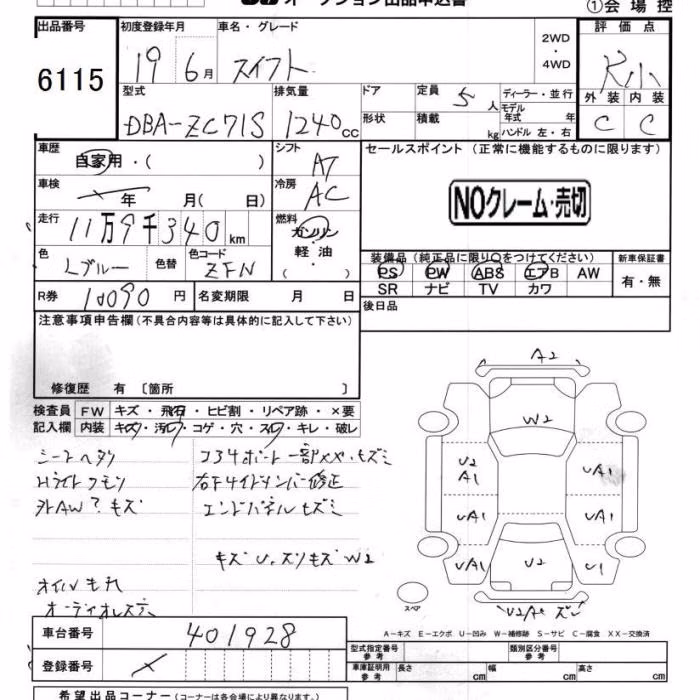 オークション出品申込書
①会場控
出品番号 初度登録年月 車名・グレード 2WD・4WD 評価点
6115 19 6月 スイフト R小
型式 排気量 ドア 定員 5人 ディーラー・並行
外装 内装
DBA-ZC71S 1240cc 形状 積載 kg モデル年式 年 ハンドル 左・右 C C
車歴 自家用・( ) シフト AT セールスポイント (正常に機能するものに限ります)
車検 年 月(日) 冷房 AC
NOクレーム・売切
走行 11万9千340km 燃料 ガソリン 軽油 ( )
色 Lブルー 色替 色コード ZFN 装備品 (純正品に限り○をつけてください) 新車保証書
PS PW ABS エアB AW 有・無
R券 10090円 名変期限 月 日 SR ナビ TV カワ
注意事項申告欄(不具合内容等は具体的に記入して下さい) 後日品
修復歴 有〔箇所 〕
検査員 FW キズ・飛石・ヒビ割・リペア跡・×要
記入欄 内装 キズ・汚レ・コゲ・穴・スレ・キレ・破レ
シートヘタリ コア4ポート一部
Hライトクモリ 右Fサイドメンバー修正
外AW?キズ エンドパネルキズミ
キズU、ズリキズW2
オイルもれ
オーディオレス
A2
W2
U2 A1 UA1
UA1 UA1
UA1 U2 U1
スペア
A-キズ E-エクボ U-凹み W-補修跡 S-サビ C-腐食 XX-交換済
車台番号 401928 型式指定番号 参考 類別区分番号 参考
登録番号 車庫証明用 参考 長さ cm 幅 cm 高さ cm
希望出品コーナー(コーナーは各会場により異なります。)